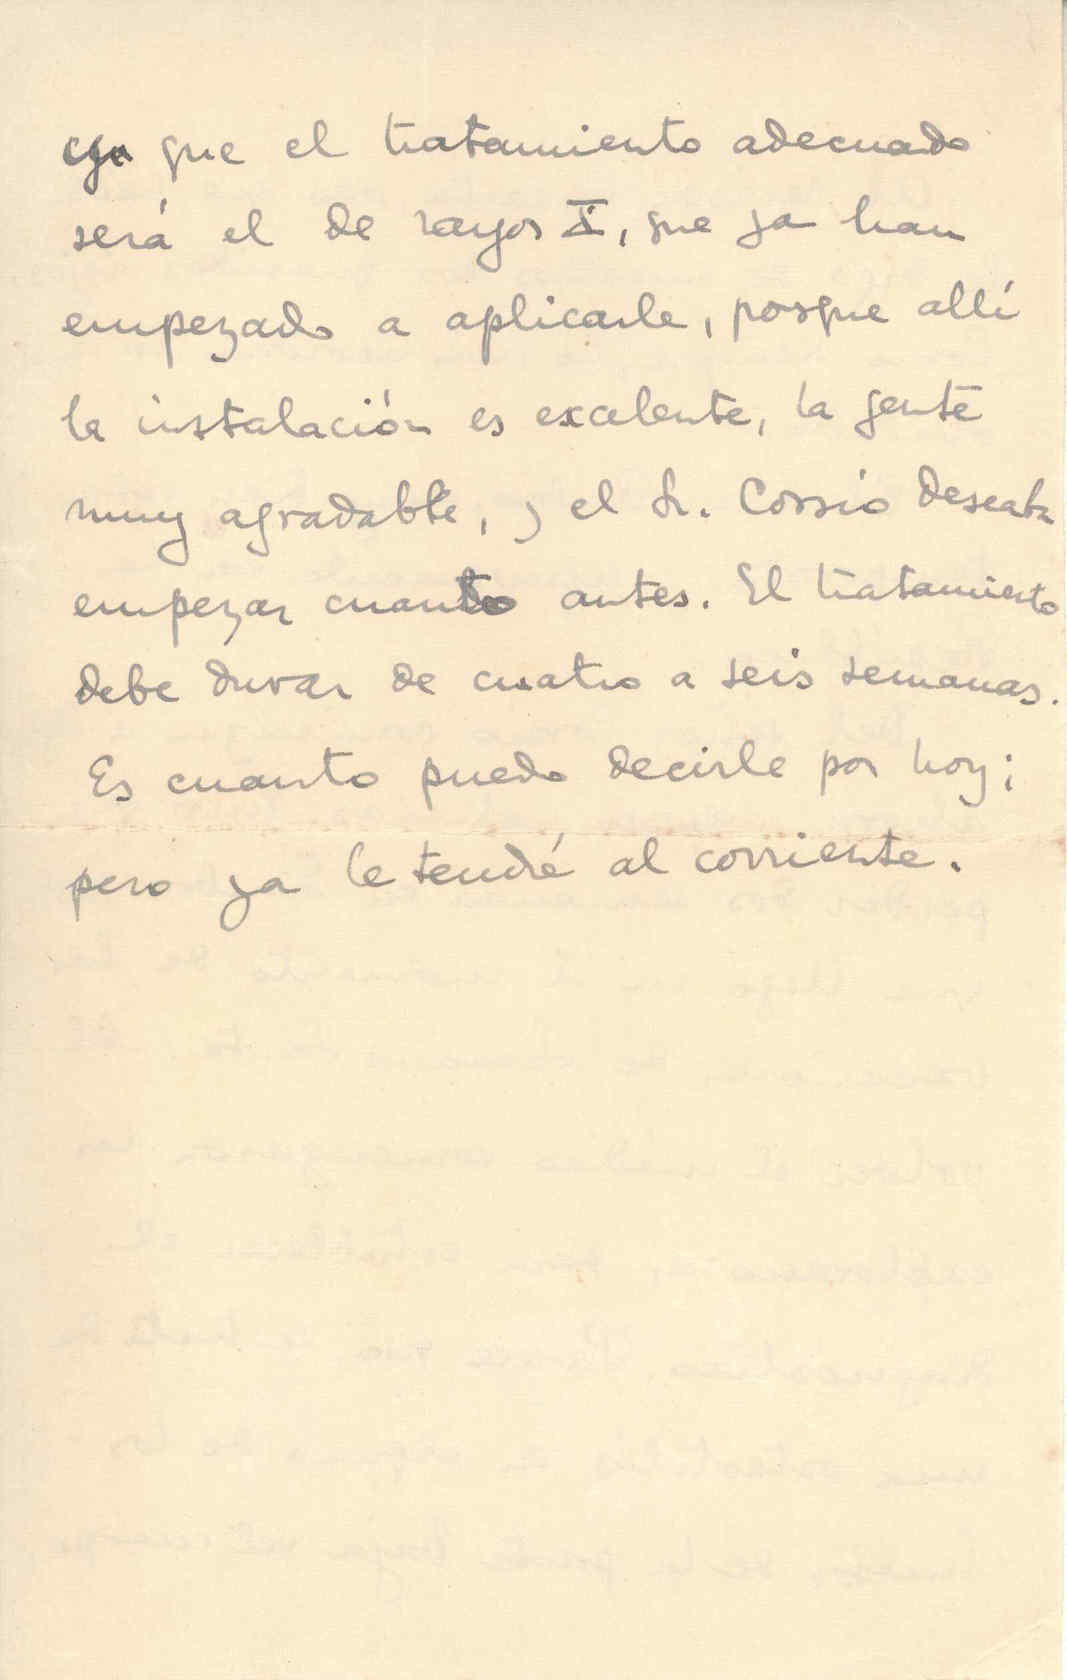 que el tratamiento adecuado
será el de rayos X, que ya han
empezado a aplicarle, porque allí
la instalación es excelente, la gente
muy agradable, y el Sr. Cossío deseaba
empezar cuanto antes. El tratamiento
debe durar de cuatro a seis semanas.
Es cuanto puedo decirle por hoy;
pero ya le tendré al corriente.